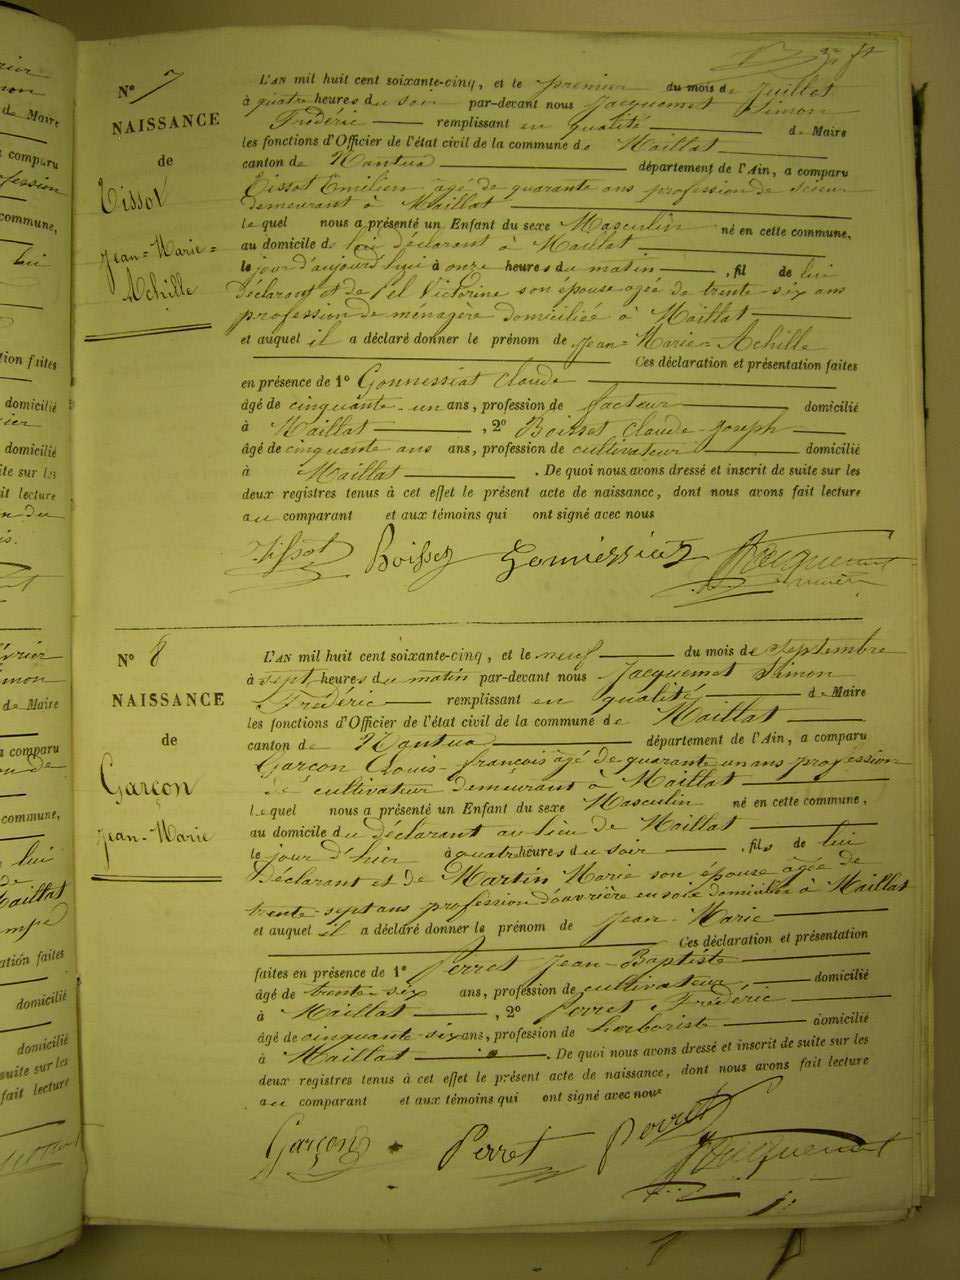 N° 7
NAISSANCE
de
Tissot
Jean-Marie=
Achille
L'AN mil huit cent soixante-cinq, et le premier du mois de Juillet
à quatre heures du soir par-devant nous Jacquemet Simon
Frédéric remplissant en qualité de Maire
les fonctions d'Officier de l'état civil de la commune de Maillat
canton de Nantua département de l'Ain, a comparu
Tissot Emilien, âgé de quarante ans profession de scieur
demeurant à Maillat
lequel nous a présenté un Enfant du sexe Masculin né en cette commune,
au domicile de lui déclarant à Maillat
le jour d'aujourd'hui à onze heures du matin, fil de lui
déclarant et de Victorine son épouse agée de trente-six ans
profession de ménagère domiciliée à Maillat
et auquel il a déclaré donner le prénom de Jean=Marie=Achille
Ces déclaration et présentation faites
en présence de 1° Gonnessiat Claude
âgé de cinquante-un ans, profession de facteur domicilié
à Maillat, 2° Boisset Claude-Joseph
âgé de cinquante ans ans, profession de cultivateur domicilié
à Maillat. De quoi nous avons dressé et inscrit de suite sur les
deux registres tenus à cet effet le présent acte de naissance, dont nous avons fait lecture
au comparant et aux témoins qui ont signé avec nous
Tissot Boisset Gonnessiat Jacquemet
N° 8
NAISSANCE
de
Garçon
Jean-Marie
L'AN mil huit cent soixante-cinq, et le neuf du mois de Septembre
à sept heures du matin par-devant nous Jacquemet Simon
Frédéric remplissant en qualité de Maire
les fonctions d'Officier de l'état civil de la commune de Maillat
canton de Nantua département de l'Ain, a comparu
Garçon Louis-françois âgé de quarante un ans profession
de cultivateur demeurant à Maillat
lequel nous a présenté un Enfant du sexe Masculin né en cette commune,
au domicile du déclarant au lieu de Maillat
le jour d'hier à quatre heures du soir, fils de lui
Déclarant et de Martin Marie son épouse âgée de
trente-sept ans profession d'ouvrière en soie à Maillat
et auquel il a déclaré donner le prénom de Jean-Marie
Ces déclaration et présentation
faites en présence de 1° Perret Jean-Baptiste
âgé de trente-six ans, profession de cultivateur domicilié
à Maillat, 2° Perret Frédéric
âgé de cinquante-six ans, profession de herboriste domicilié
à Maillat. De quoi nous avons dressé et inscrit de suite sur les
deux registres tenus à cet effet le présent acte de naissance, dont nous avons fait lecture
au comparant et aux témoins qui ont signé avec nous
Garçon Perret Perret Jacquemet